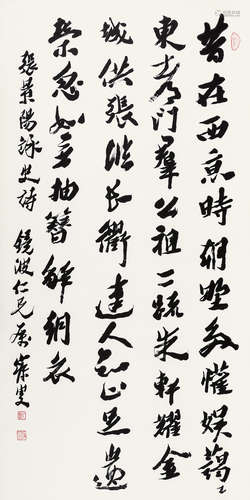 昔在西京時朝野多懽娛藹〻
東都門羣公祖二疏朱軒耀金
城供張臨長衢達人知止足遺
榮忽如無抽簪解朝衣
張景陽詠史詩 鏡波仁兄屬 寐叟